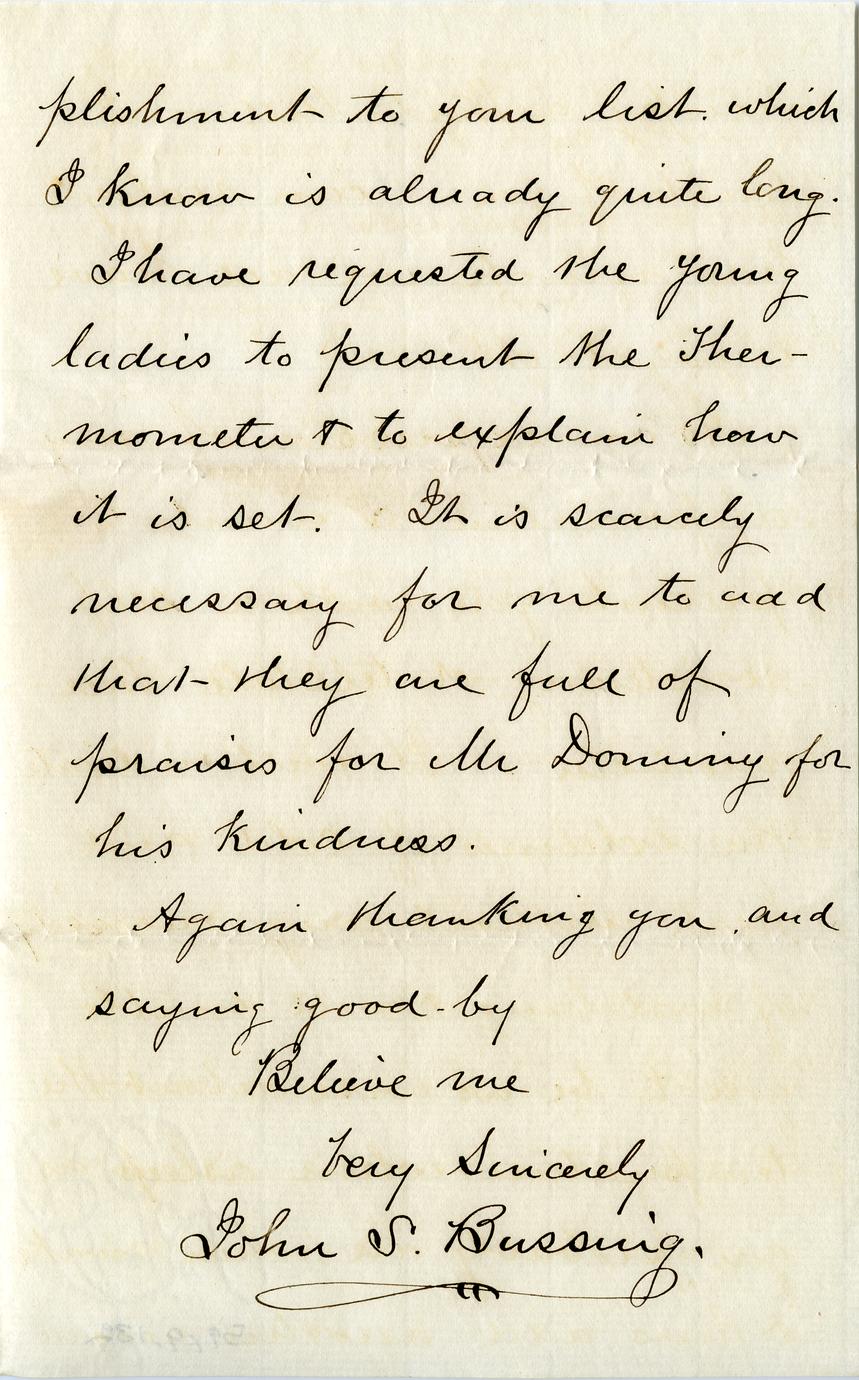 plishment to your list. which
I know is already quite long.
I have requested the young
ladies to present the Ther-
mometer & to explain how
it is set. It is scarcely
necessary for me to add
that they are full of
praises for Mr Dominy for
his kindness.
Again thanking you, and
saying good-by
Believe me
Very Sincerely
John S. Bussing.